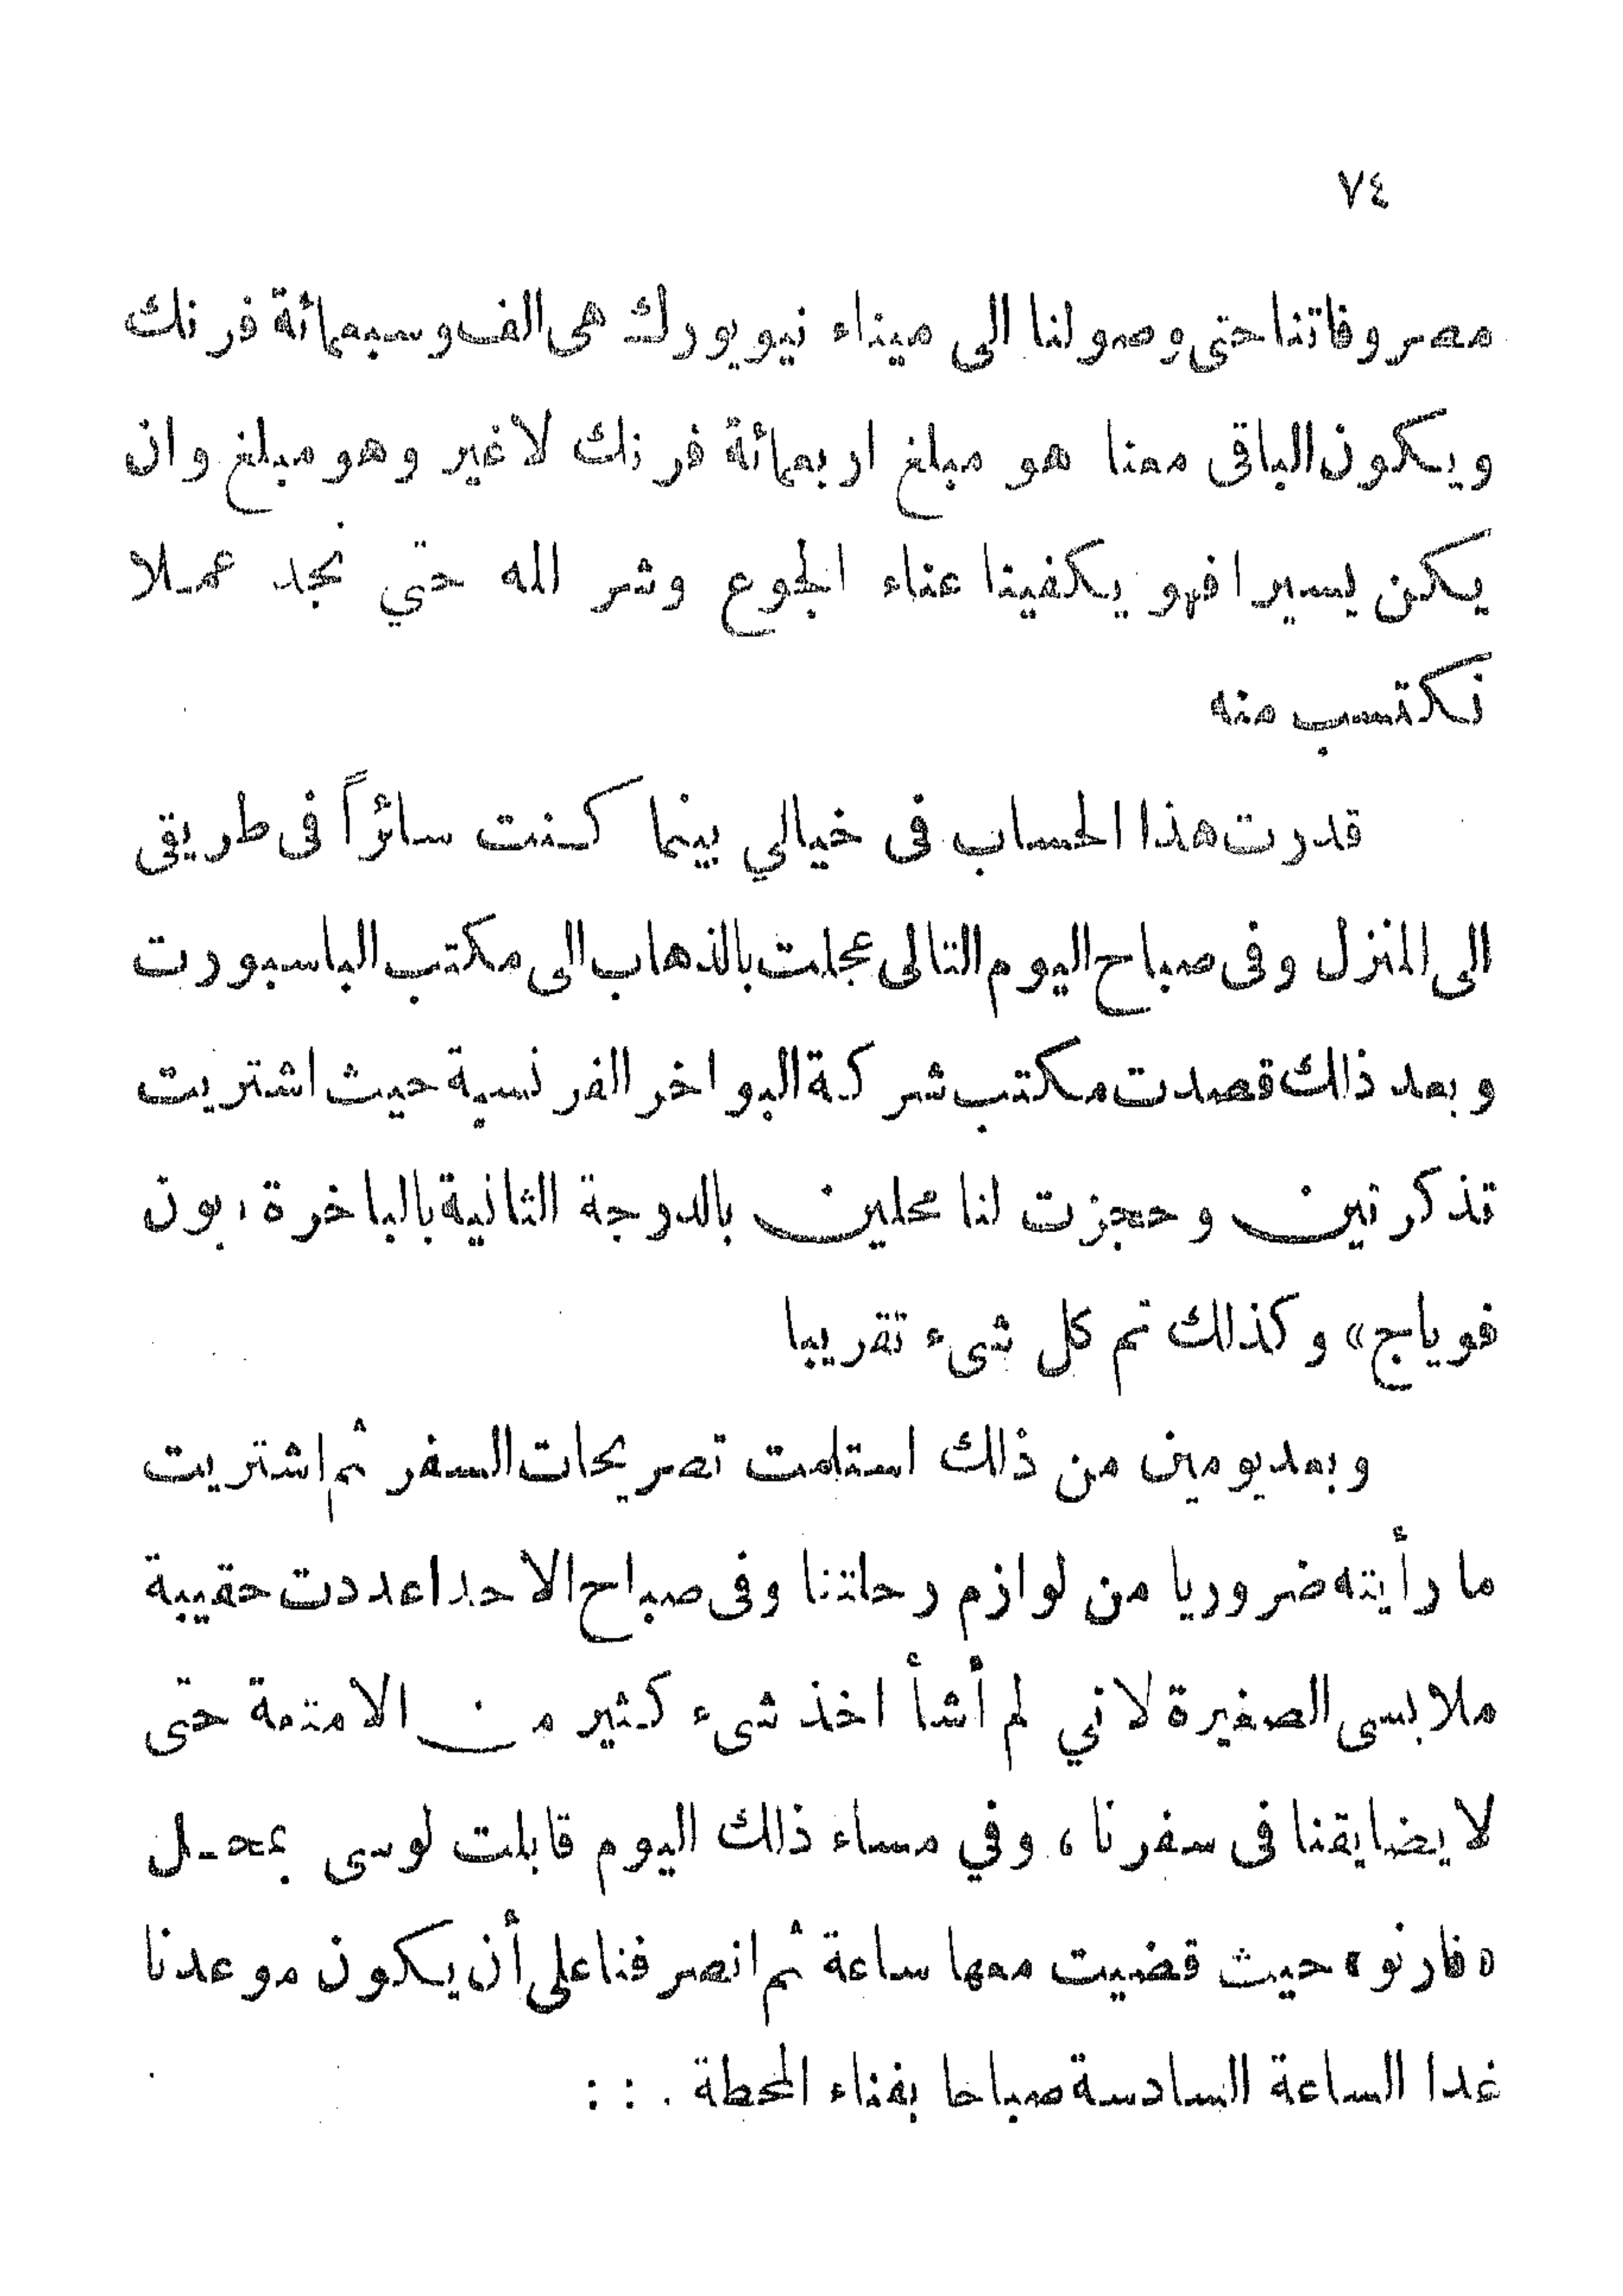 ٧٤
مصروفاتنا حتى وصولنا الى ميناء نيويورك هى الف وسبعمائة فرنك
ويكون الباقى معنا هو مبلغ اربعمائة فرنك لاغير وهو مبلغ وان
يكن يسيرا فهو يكفينا عناء الجوع وشر الله حتي نجد عملا
نكتسب منه
قدرت هذا الحساب فى خيالي بينما كنت سائراً فى طريقى
الى المنزل وفى صباح اليوم التالى عجلت بالذهاب الى مكتب الباسبورت
وبعد ذلك قصدت مكتب شركة البواخر الفرنسية حيث اشتريت
تذكرتين وحجزت لنا محلين بالدوجة الثانية بالباخرة ، بون
فوياج» وكذلك تم كل شىء تقريبا
وبعد يومين من ذلك استلمت تصريحات السفر ثم اشتريت
ما رأيته ضروريا من لوازم رحلتنا وفى صباح الاحد اعددت حقيبة
ملابسى الصغيرة لاني لم أشأ اخذ شىء كثير من الامتعة حتى
لا يضايقنا فى سفرنا ، وفي مساء ذلك اليوم قابلت لوسى بمحـل
«فارنو» حيث قضيت معها ساعة ثم انصرفنا على أن يكون موعدنا
غدا الساعة السادسة صباحا بفناء المحطة . : :